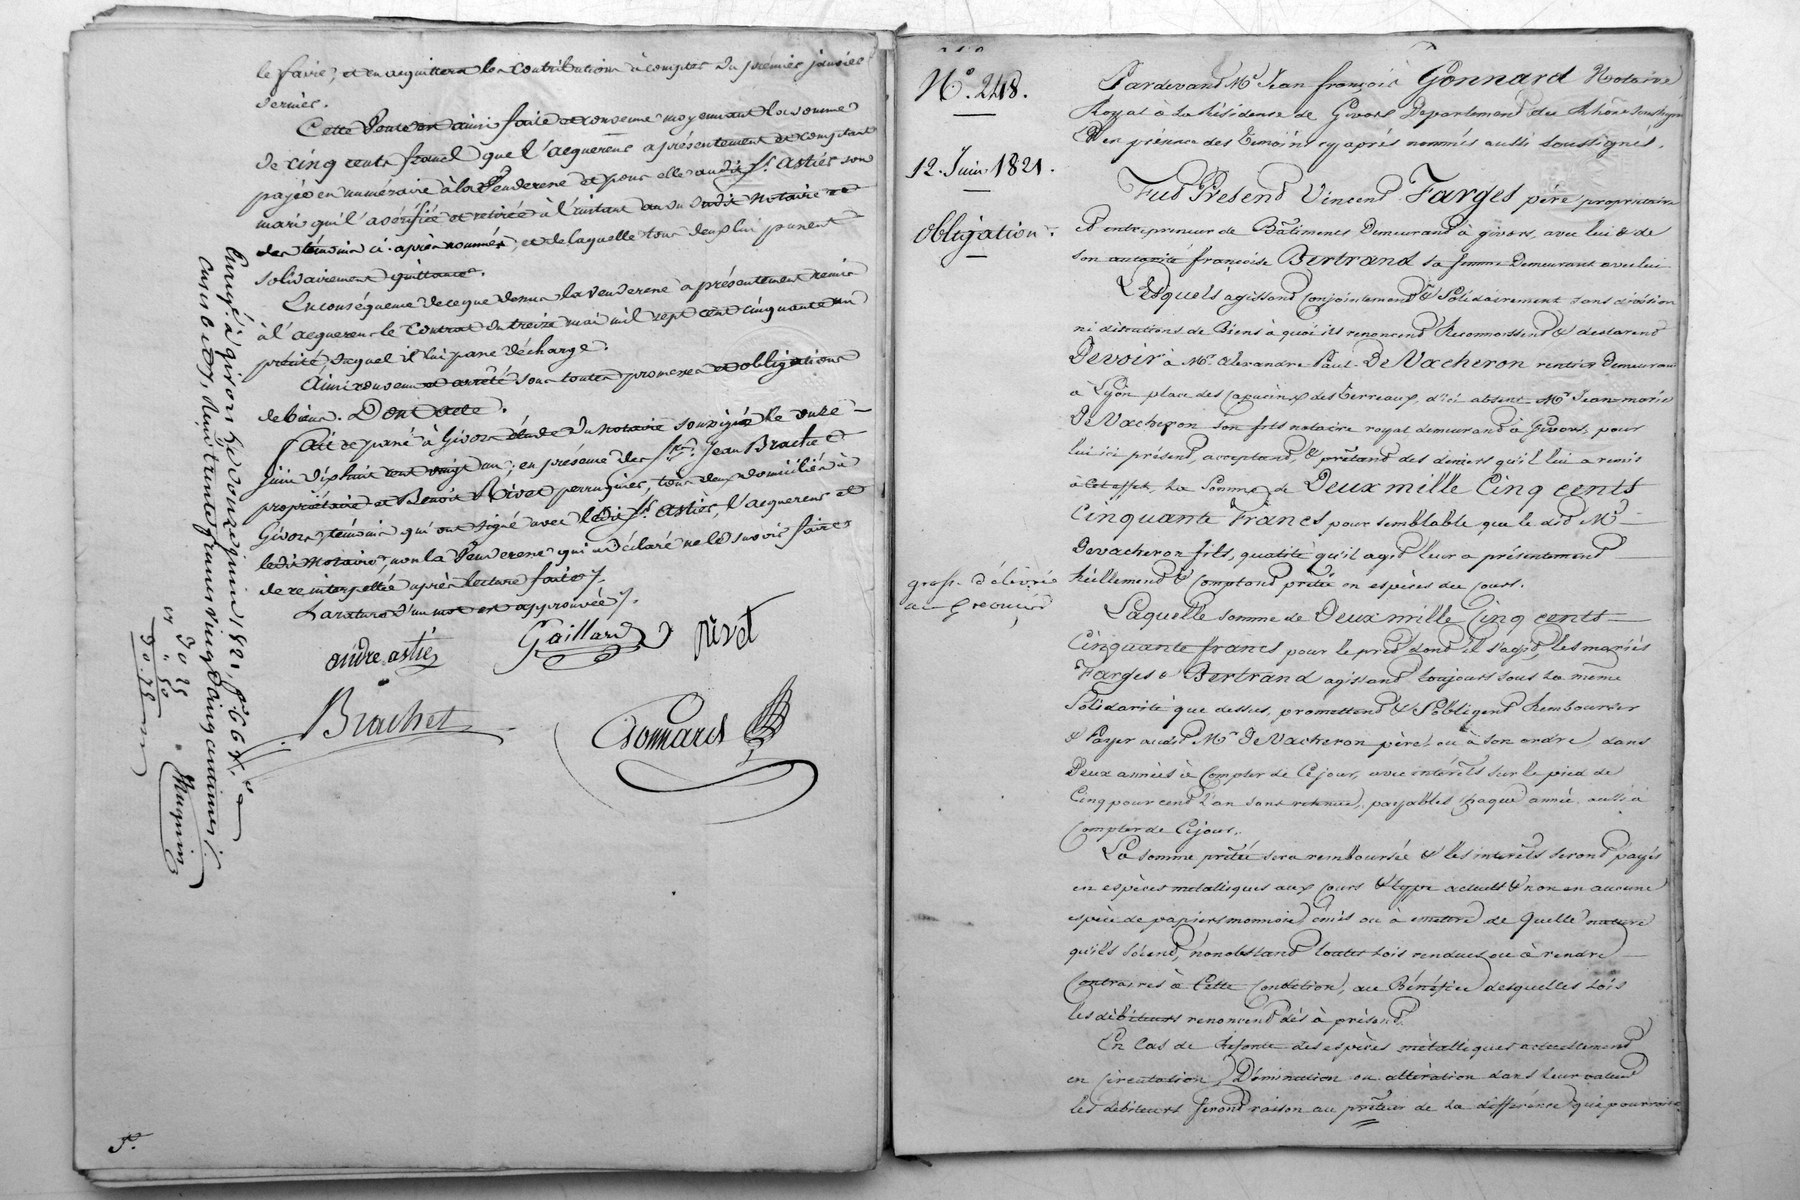 le favre, et en acquittera les contributions à compter du premier janvier
dernier.
Cette vente est ainsi faite et convenue moyennant la somme
de cinq cents francs que l'acquereur a présentement et comptant
payée en numéraire à la Venderesse et pour elle audit Sr. Astier son
mari qui l'a vérifiée et retirée à l'instant au vu dudit Notaire et
des témoins ci-après nommés, et de laquelle tous deux lui passent
solidairement quittance.
En conséquence de ce que dessus la venderesse a présentement remis
à l'acquereur le Contrat du treize mai mil sept cent cinquante un
précité duquel il lui passe décharge.
Ainsi convenu et arrêté sous toutes promesses et obligations
de biens. Dont acte.
Fait et passé à Givors étude du Notaire soussigné le onze
juin dix huit cent vingt un; en présence des Srs. Jean Brachet
propriétaire et Benoit Rivet perruquier, tous deux domiciliés à
Givors, témoins qui ont signé avec ledit Sr. Astier, l'acquereur et
ledit Notaire, non la Venderesse qui a déclaré ne le savoir faire
de ce interpellée après lecture faite.
La rature d'un mot est approuvée.
andre astier Gaillard Rivet
Brachet Gonnard
Enregé à givors le douze juin 1821, fo. 66 Ro.
cases 6 et 7, reçu trente francs vingt cinq centimes
30 25
30.25
5e.
No. 248.
12. Juin 1821.
Obligation.
grosse délivrée
au créancier
Pardevant Me Jean françois Gonnard Notaire
Royal à la Résidense de Givors Département du Rhône soussigné
Et en présence des Témoins cy après nommés aussi soussignés.
Fut Présent Vincent Farges père propriétaire
Et entrepreneur de Bâtiments Demeurant à givors, avec lui & de
son autorité françoise Bertrand sa femme Demeurant avec lui
Lesquels agissant conjointement & Solidairement sans division
ni discutions de Biens à quoi ils renoncent Reconnoissent & déclarent
Devoir à Mr. Alexandre Paul De Vacheron rentier Demeurant
à Lyon place des Capucins des Terreaux, d'ici absent Mr. Jean marie
De Vacheron son fils notaire royal demeurant à Givors, pour
lui ici présent, acceptant, & prêtant des deniers qu'il lui a remis
à cet effet, la Somme de Deux mille Cinq cents
Cinquante Francs pour semblable que le dit Mr.
Devacheron fils, qualité qu'il agit leur a présentement
Réellement & Comptant prêté en espèces du cours.
Laquelle somme de Deux mille Cinq cents
Cinquante francs pour le prêt dont il s'agit, les mariés
Farges & Bertrand agissant toujours sous la même
Solidarité que dessus, promettent & S'obligent Rembourser
& Payer audit Mr. De Vacheron père, ou à son ordre, dans
Deux années à Compter de Ce jour, avec intérêts sur le pied de
Cinq pour cent l'an sans retenue, payables chaque année aussi à
Compter de Ce jour.
La somme prêtée sera remboursée & les interêts seront payés
en espèces métalliques aux cours & type actuels & non en aucune
espèce de papiers monnoie émis ou à emettre de quelle nature
qu'ils soient, nonobstant toutes lois rendues ou à rendre
Contraires à Cette Condition, au Bénéfice desquelles lois
les débiteurs renoncent dès à présent.
En Cas de Refonte des espèces métalliques actuellement
en Circulation, Diminution ou altération dans leur valeur
les débiteurs feront raison au prêteur de la différence qui pourroit